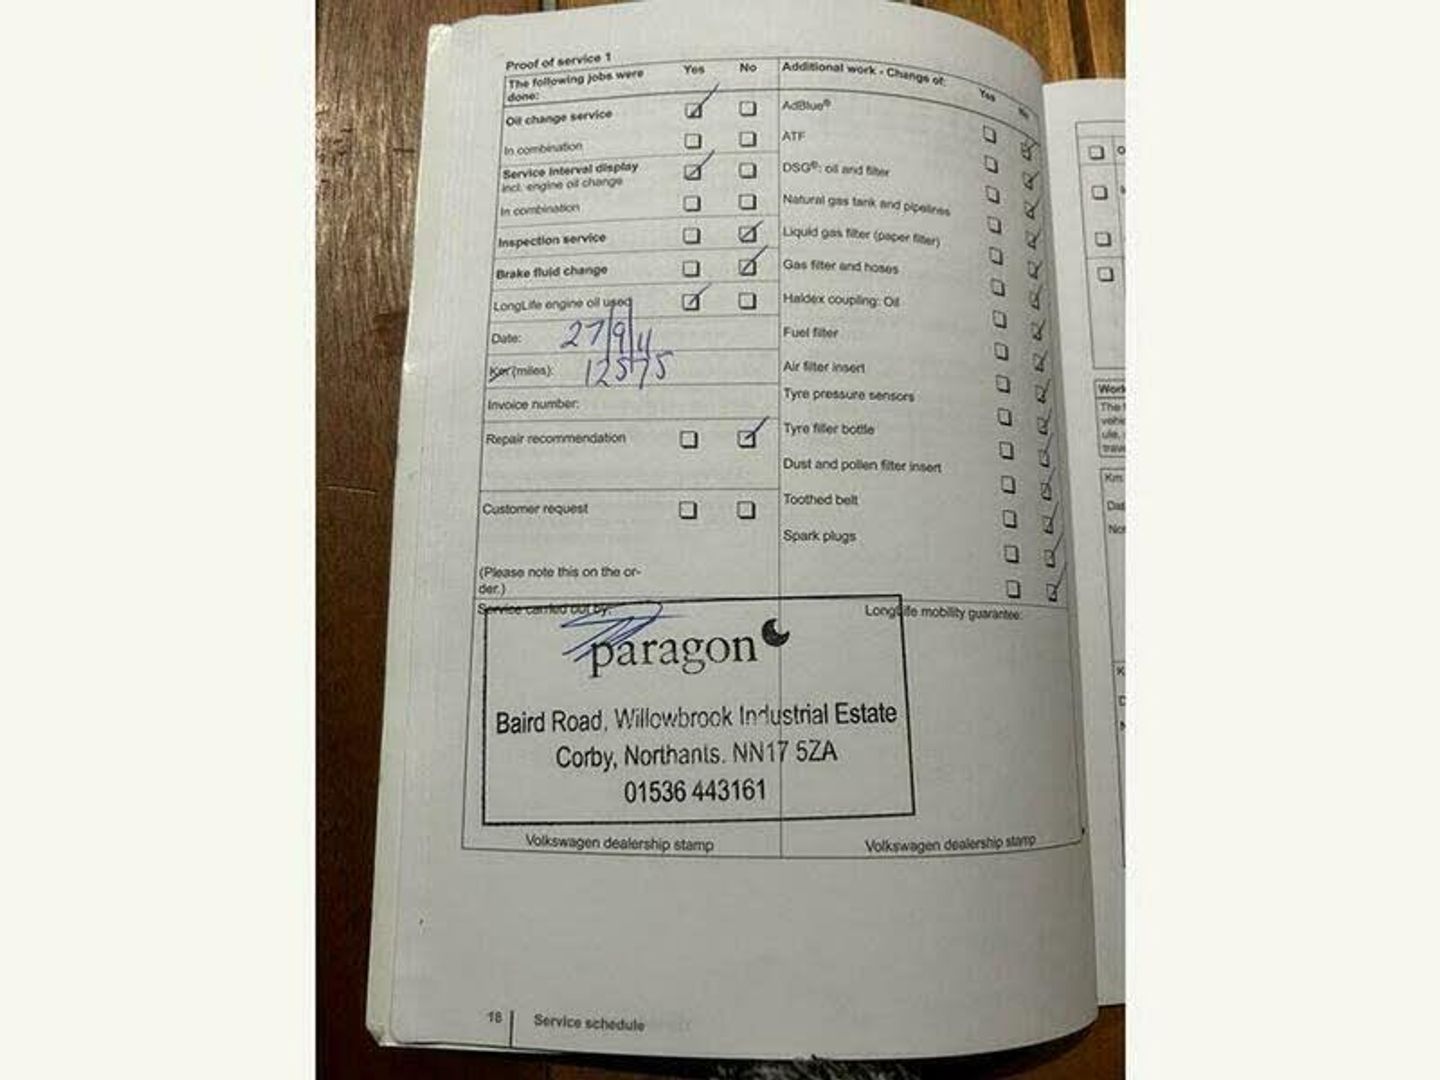 Proof of service 1
The following jobs were done: Yes No
Oil change service
In combination
Service interval display
incl. engine oil change
In combination
Inspection service
Brake fluid change
LongLife engine oil used
Date: 27/9/11
Km (miles): 12575
Invoice number:
Repair recommendation
Customer request
(Please note this on the or-
der.)
Service carried out by:
Additional work - Change of: Yes No
AdBlue®
ATF
DSG®: oil and filter
Natural gas tank and pipelines
Liquid gas filter (paper filter)
Gas filter and hoses
Haldex coupling: Oil
Fuel filter
Air filter insert
Tyre pressure sensors
Tyre filler bottle
Dust and pollen filter insert
Toothed belt
Spark plugs
LongLife mobility guarantee:
paragon
Baird Road, Willowbrook Industrial Estate
Corby, Northants. NN17 5ZA
01536 443161
Volkswagen dealership stamp
Volkswagen dealership stamp
18 Service schedule
Work
Km